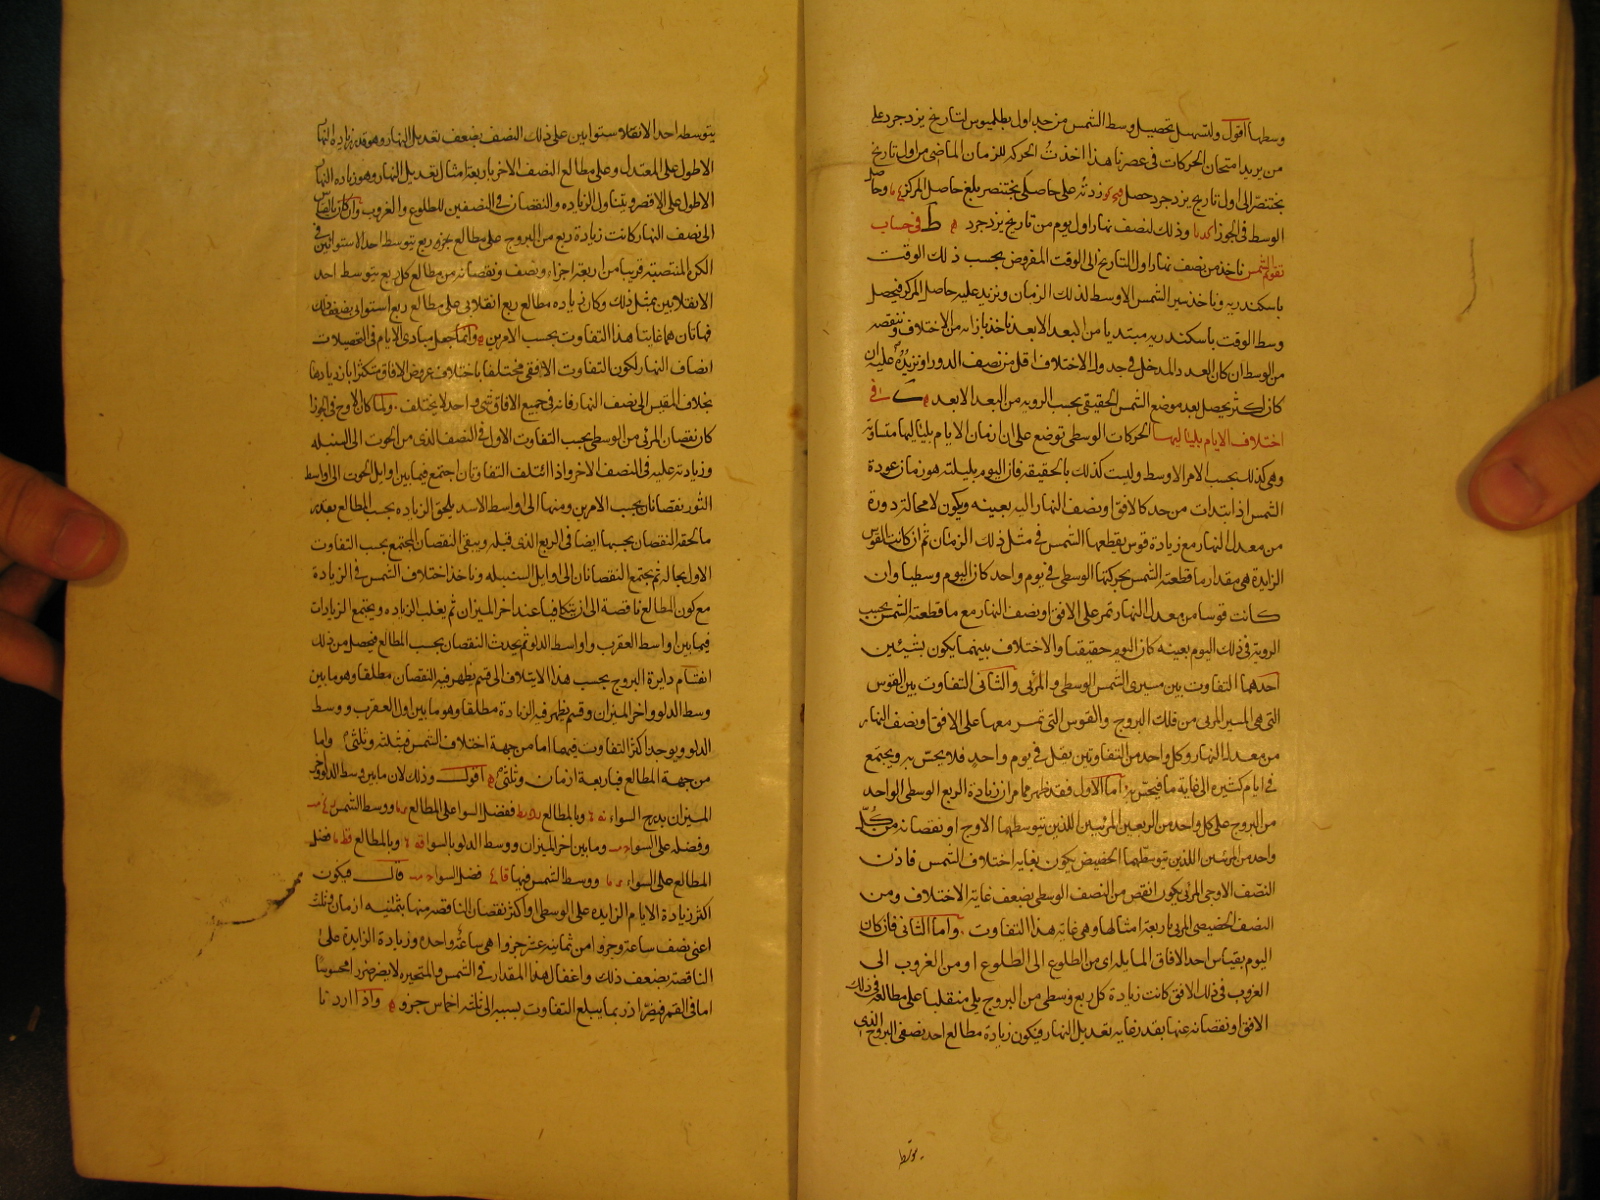 وسطها اقول ولتسهل تحصيل وسط الشمس من جداول بطلميوس لتاريخ يزدجرد على
من يريد امتحان الحركات فى عصرنا هذا اخذتُ الحركة للزمان الماضى من اول تاريخ
بختنصر الى اول تاريخ يزدجرد حصل زدته على حاصلى بختنصر بلغ حاصل المركز وحاصل
الوسط فى الجوزا وذلك لنصف نهار اول يوم من تاريخ يزدجرد ه ط فى حساب
تقويم الشمس ناخذ من نصف نهار اول التاريخ الى الوقت المفروض بحسب ذلك الوقت
باسكندريه وناخذ سير الشمس الاوسط لذلك الزمان ونزيد عليه حاصل المركز فيحصل
وسط الوقت باسكندريه مبتديا من البعد الابعد ناخذ بازائه من الاختلاف وننقصه
من الوسط ان كان العدد المدخل فى جدول الاختلاف اقل من نصف الدور او نزيده عليه ان
كان اكثر يحصل بعد موضع الشمس الحقيقى بحسب الرويه من البعد الابعد ه ى فى
اختلاف الايام بلياليها الحركات الوسطى توضع على ان ازمان الايام بلياليها متساوية
وهى كذلك بحسب الامر الاوسط وليست كذلك بالحقيقة فان اليوم بليلته هو زمان عودة
الشمس اذا ابتدات من حد كالافق او نصف النهار اليه بعينه ويكون لا محالة دورة
من معدل النهار مع زيادة قوس يقطعها الشمس فى مثل ذلك الزمان ثم ان كانت القوس
الزايدة هى مقدار ما قطعته الشمس بحركتها الوسطى فى يوم واحد كان اليوم وسطيا وان
كانت قوسا من معدل النهار تمر على الافق او نصف النهار مع ما قطعته الشمس بحسب
الروية فى ذلك اليوم بعينه كان اليوم حقيقيا والاختلاف بينهما يكون بشيئين
احدهما التفاوت بين مسيرى الشمس الوسطى والمرئى والثانى التفاوت بين القوس
التى هى المسير المرئى من فلك البروج والقوس التى تمر معها على الافق او نصف النهار
من معدل النهار وكل واحد من التفاوتين يقل فى يوم واحد فلا يحس به ويجتمع
فى ايام كثيرة الى غاية ما فيحس به اما الاول فقد ظهر مما مر ان زيادة الربع الوسطى الواحد
من البروج على كل واحد من الربعين المرئيين اللذين يتوسطهما الاوج او نقصانه من كل
واحد من المرئيين اللذين يتوسطهما الحضيض يكون بغاية اختلاف الشمس فاذن
النصف الاوجى المرئى يكون انقص من النصف الوسطى بضعف غاية الاختلاف ومن
النصف الحضيضى المرئى باربعة امثالها وهى غاية هذا التفاوت واما الثانى فان كان
اليوم بقياس احد الافاق المايلة اى من الطلوع الى الطلوع او من الغروب الى
الغروب فى ذلك الافق كانت زيادة كل ربع وسطى من البروج يلى منقلبا على مطالعه فى ذلك
الافق او نقصانه عنها بقدر غاية تعديل النهار فيكون زيادة مطالع احد نصفى البروج الذى
يتوسط
يتوسطه احد الانقلاستوايين على ذلك النصف بضعف تعديل النهار وهو قدر زيادة النهار
الاطول على المعتدل وعلى مطالع النصف الاخر باربعة امثال تعديل النهار وهو زيادة النهار
الاطول على الاقصر ويتناول الزياده والنقصان فى النصفين للطلوع والغروب وان كان بالقياس
الى نصف النهار كانت زيادة ربع من البروج على مطالع بحزه ربع يتوسط احد الاستوائين فى
الكرة المنتصبة قريبا من اربعة اجزاء ونصف ونقصانه من مطالع كل ربع يتوسط احد
الانقلابين بمثل ذلك وكان زيادة مطالع ربع انقلابى على مطالع ربع استوائى بضعف ذلك
فهاتان هما غايتا هذا التفاوت بحسب الامرين ه وانما جعل مبادى الايام فى التحصيلات
انصاف النهار لكون التفاوت الافقى مختلفا باختلاف عروض الافاق متكثرا بازديادها
بخلاف المقيس الى نصف النهار فانه فى جميع الافاق شى واحد لا يختلف ولما كان الاوج فى الجوزا
كان نقصان المرئى من الوسطى بحسب التفاوت الاول فى النصف الذى من الحوت الى السنبله
وزيادته عليه فى النصف الاخر واذا ائتلف التفاوتان اجتمع فيما بين اوايل الحوت الى اواسط
الثور نقصانان بحسب الامرين ومنها الى اواسط الاسد يلحق الزياده بحسب المطالع بقدر
ما لحقه النقصان بحسبها ايضا فى الربع الذى قبله ويبقى النقصان المجتمع بحسب التفاوت
الاول بحاله ثم يجتمع النقصانان الى اوايل السنبله وناخذ اختلاف الشمس فى الزيادة
مع كون المطالع ناقصة الى ان يتكافيا عند اخر الميزان ثم يغلب الزياده ويجتمع الزيادات
فيما بين اواسط العقرب واواسط الدلو ثم يحدث النقصان بحسب المطالع فيحصل من ذلك
انقسام دايرة البروج بحسب هذا الايتلاف الى قسم يظهر فيه النقصان مطلقا وهو ما بين
وسط الدلو واخر الميزان وقسم يظهر فيه الزيادة مطلقا وهو ما بين اول العقرب ووسط
الدلو ويوجد اكثر التفاوت فيهما اما من جهة اختلاف الشمس فبثلثه وثلثى واما
من جهة المطالع فباربعة ازمان وثلثى ه اقول وذلك لان ما بين وسط الدلو واخر
الميزان بدرج السواء وبالمطالع ففضل السوا على المطالع ووسط الشمس
وفضله على السواء وما بين اخر الميزان ووسط الدلو بالسوا وبالمطالع فضل
المطالع على السواء ووسط الشمس فيها فضل السوا قال فيكون
اكثر زيادة الايام الزايده على الوسطى او اكثر نقصان الناقصة منها بثمنيه ازمان وثلث
اعنى نصف ساعة وجزوا من ثمانية عشر جزوا هى ساعة واحده وزيادة الزايدة على
الناقصة بضعف ذلك واغفال هذا المقدار فى الشمس والمتحيره لا يضر ضررا محسوسا
اما فى القمر فيضر اذ ربما يبلغ التفاوت بسببه الى ثلثه اخماس جزو ه واذا اردنا